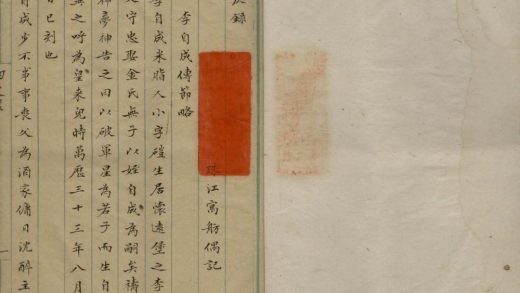 灰錄
珠江寓舫偶記
李自成傳節略
李自成米脂人小字磑生居懷遠堡之李
父守忠娶金氏無子以姪自成為嗣矣禱
神夢神告之曰以破軍星為若子而生自
無之呼為皇來兒時萬曆三十三年八月
日巳刻也
自成少不事事喪父為酒家傭日沈醉主